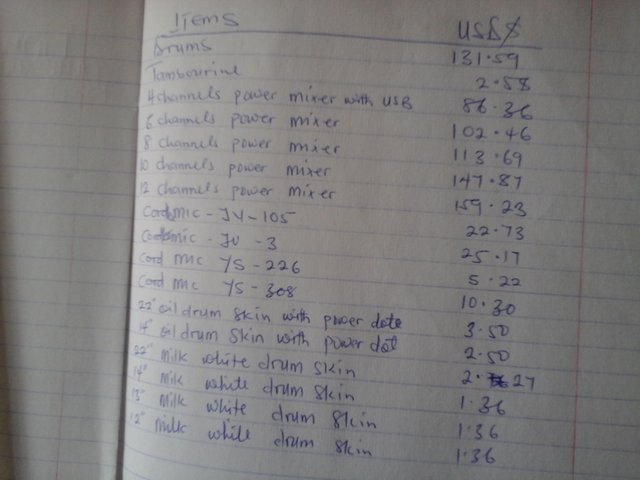 Items USD$
Drums 131.59
Tambourine 2.58
4 channels power mixer with USB 86.36
6 channels power mixer 102.46
8 channels power mixer 113.69
10 channels power mixer 147.87
12 channels power mixer 159.23
Cord mic - JV-105 22.73
Cord mic - JV - 3 25.17
Cord mic YS - 226 5.22
Cord mic YS - 308 10.30
22" oil drum skin with power dote 3.50
14" oil drum skin with power dot 2.50
22" milk white drum skin 2.27
14" milk white drum skin 1.36
13" milk white drum skin 1.36
12" milk white drum skin 1.36